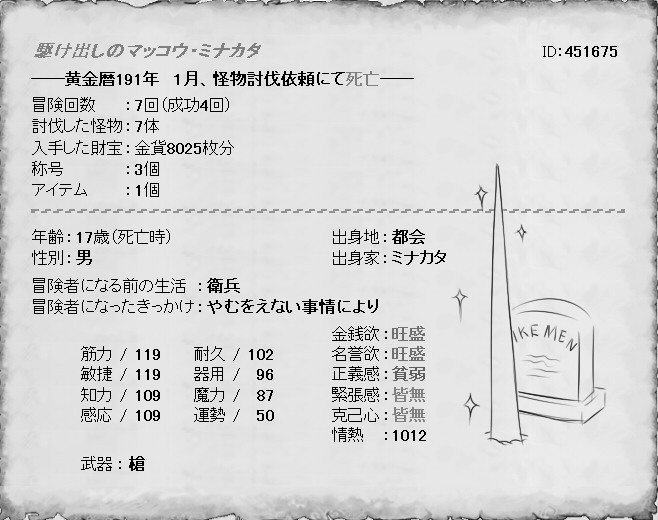 駆け出しのマッコウ・ミナカタ ID:451675
――黄金暦191年 1月、怪物討伐依頼にて死亡――
冒険回数 : 7回(成功4回)
討伐した怪物 : 7体
入手した財宝 : 金貨8025枚分
称号 : 3個
アイテム : 1個
年齢 : 17歳(死亡時) 出身地 : 都会
性別 : 男 出身家 : ミナカタ
冒険者になる前の生活 : 衛兵
冒険者になったきっかけ : やむをえない事情により
金銭欲 : 旺盛
筋力 / 119 耐久 / 102 名誉欲 : 旺盛
敏捷 / 119 器用 / 96 正義感 : 貧弱
知力 / 109 魔力 / 87 緊張感 : 皆無
感応 / 109 運勢 / 50 克己心 : 皆無
情熱 : 1012
武器 : 槍
IKEMEN